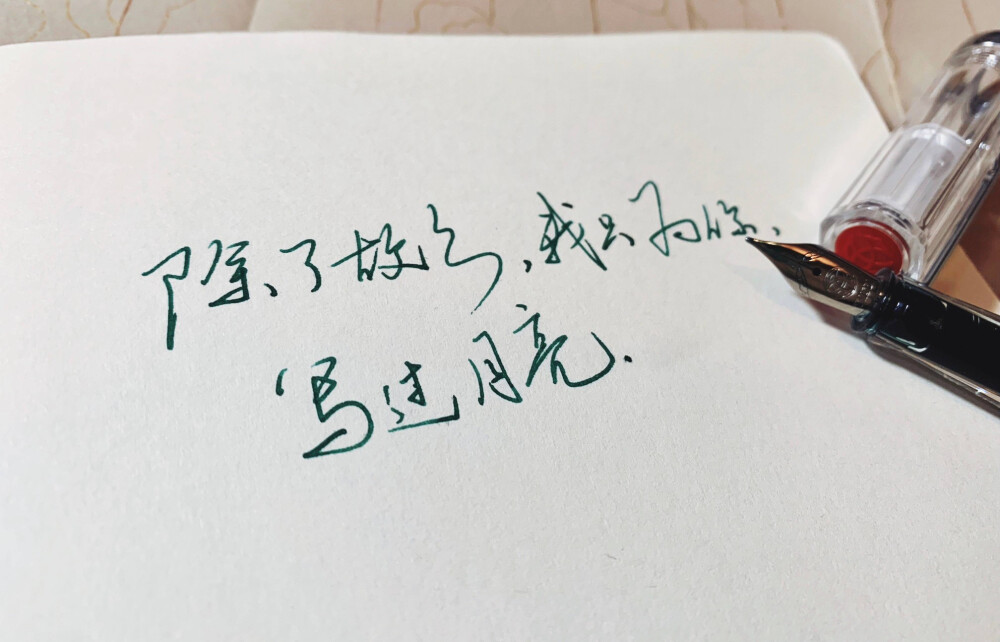 除了故乡,我只为你、
写过月亮.